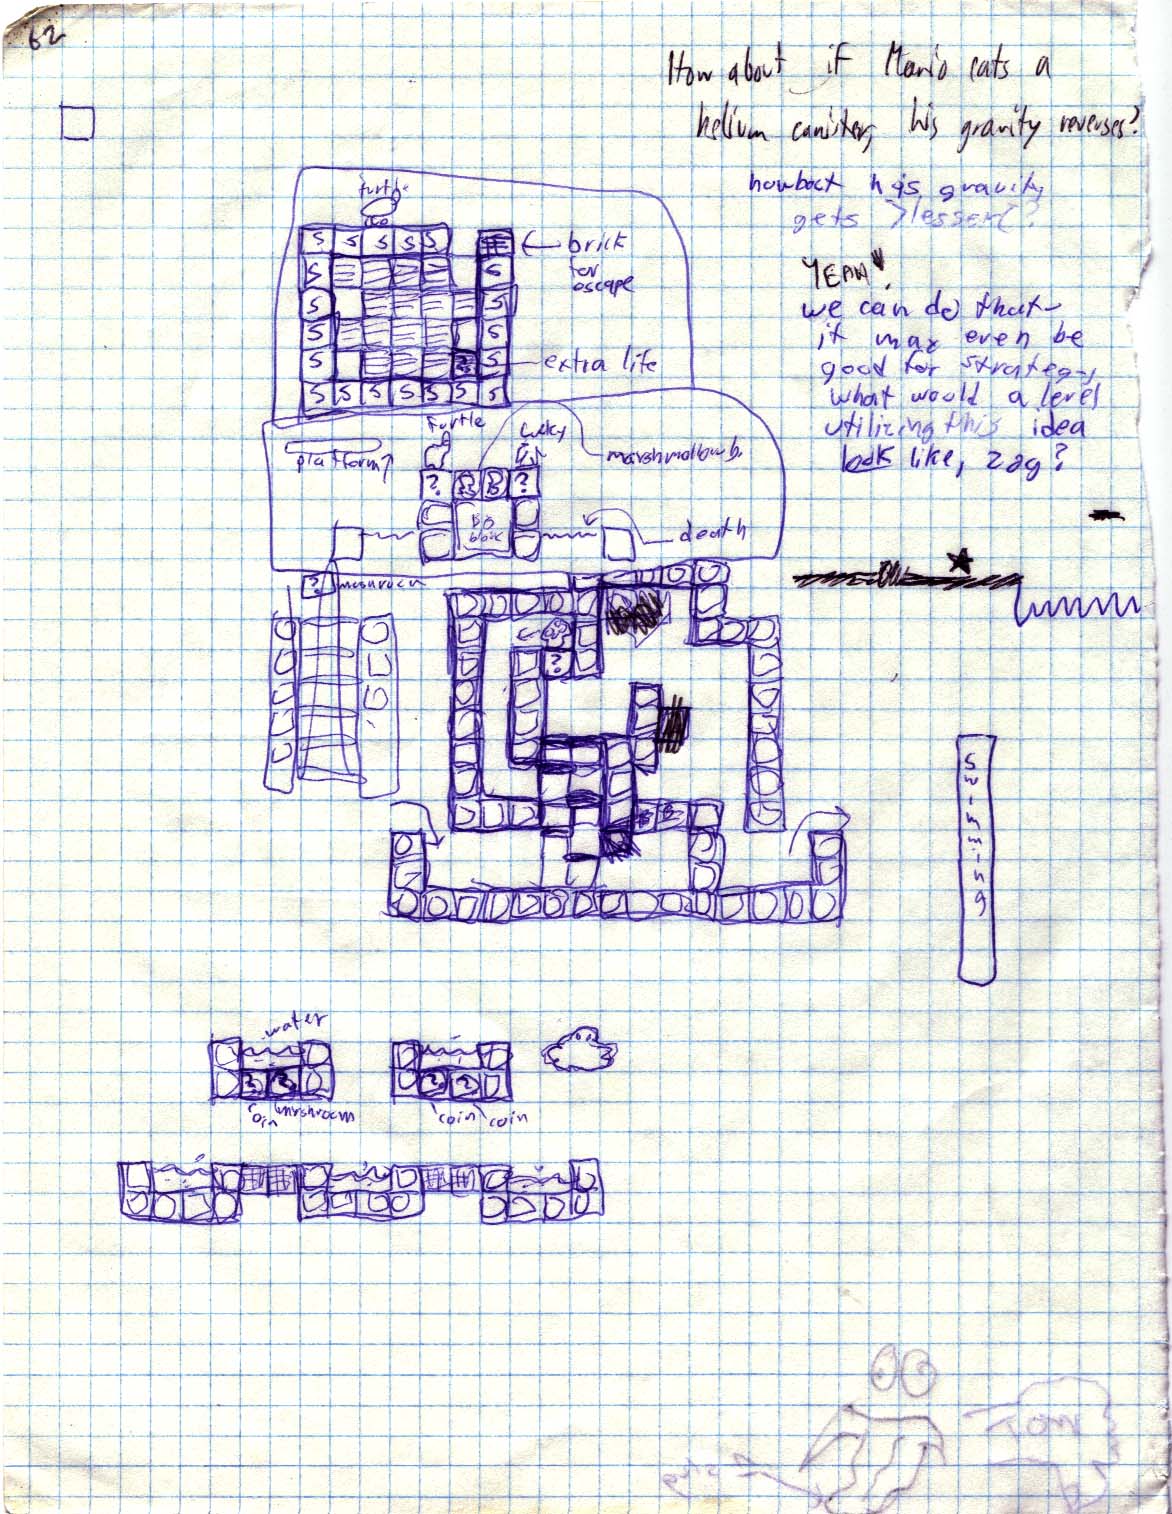 62
How about if Mario eats a
helium canister, his gravity reverses?
howbout his gravity
gets >lesser<?
YEAH!
we can do that-
it may even be
good for strategy
what would a level
utilizing this idea
look like, zag?
turtle
S S S S S
brick
for
escape
S S
S S
S S
S S
extra life
S S S S S S S
turtle
platform
marshmallow b.
? ?
Big
block
death
? mushroom
?
B B
swimming
water
coin
mushroom
coin coin